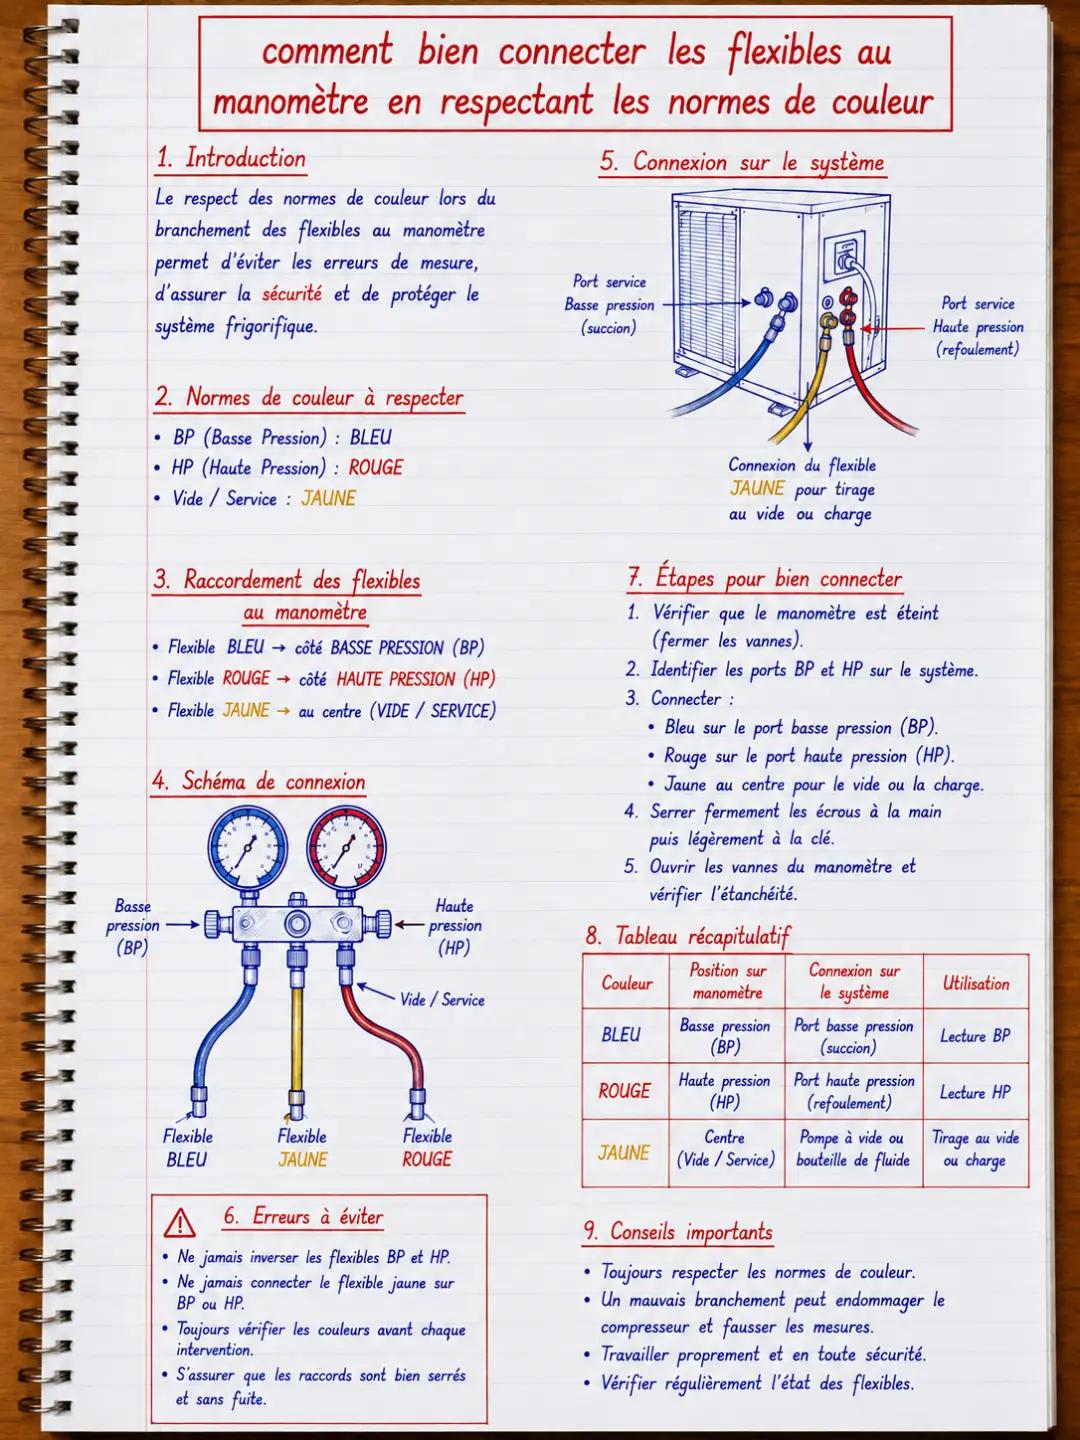 comment bien connecter les flexibles au
manomètre en respectant les normes de couleur
1. Introduction
Le respect des normes de couleur lors du
branchement des flexibles au manomètre
permet d'éviter les erreurs de mesure,
d'assurer la sécurité et de protéger le
système frigorifique.
2. Normes de couleur à respecter
• BP (Basse Pression) : BLEU
• HP (Haute Pression) : ROUGE
• Vide / Service : JAUNE
3. Raccordement des flexibles
au manomètre
• Flexible BLEU → côté BASSE PRESSION (BP)
• Flexible ROUGE → côté HAUTE PRESSION (HP)
• Flexible JAUNE → au centre (VIDE / SERVICE)
4. Schéma de connexion
Basse
pression
(BP)
Haute
pression
(HP)
Vide / Service
Flexible
BLEU
Flexible
JAUNE
Flexible
ROUGE
6. Erreurs à éviter
• Ne jamais inverser les flexibles BP et HP.
• Ne jamais connecter le flexible jaune sur
BP ou HP.
• Toujours vérifier les couleurs avant chaque
intervention.
• S'assurer que les raccords sont bien serrés
et sans fuite.
5. Connexion sur le système
Port service
Basse pression
(succion)
Port service
Haute pression
(refoulement)
Connexion du flexible
JAUNE pour tirage
au vide ou charge
7. Étapes pour bien connecter
1. Vérifier que le manomètre est éteint
(fermer les vannes).
2. Identifier les ports BP et HP sur le système.
3. Connecter :
• Bleu sur le port basse pression (BP).
• Rouge sur le port haute pression (HP).
• Jaune au centre pour le vide ou la charge.
4. Serrer fermement les écrous à la main
puis légèrement à la clé.
5. Ouvrir les vannes du manomètre et
vérifier l'étanchéité.
8. Tableau récapitulatif
Couleur
Position sur
manomètre
Connexion sur
le système
Utilisation
BLEU
Basse pression
(BP)
Port basse pression
(succion)
Lecture BP
ROUGE
Haute pression
(HP)
Port haute pression
(refoulement)
Lecture HP
JAUNE
Centre
(Vide / Service)
Pompe à vide ou
bouteille de fluide
Tirage au vide
ou charge
9. Conseils importants
• Toujours respecter les normes de couleur.
• Un mauvais branchement peut endommager le
compresseur et fausser les mesures.
• Travailler proprement et en toute sécurité.
• Vérifier régulièrement l'état des flexibles.